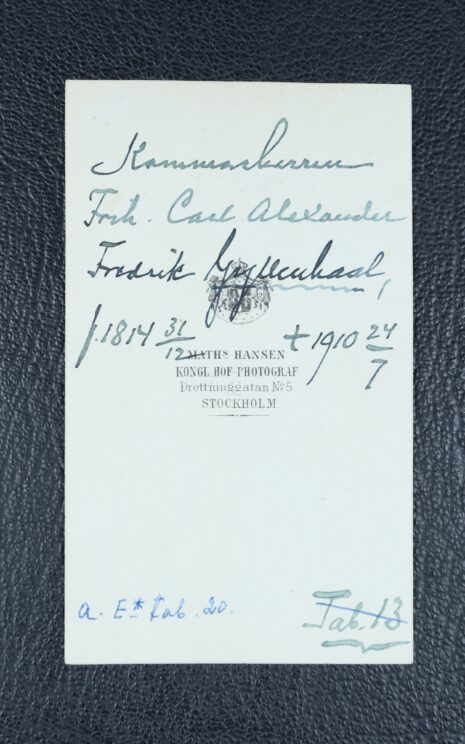 Kammarherren
Frih. Carl Alexander
Fredrik Gyllenhaal,
f. 1814 31/12 † 1910 24/7
MATHS HANSEN
KÖNGL. HOF-PHOTOGRAF
Drottninggatan No 5
STOCKHOLM
a. E* tab. 20.
Tab. 13